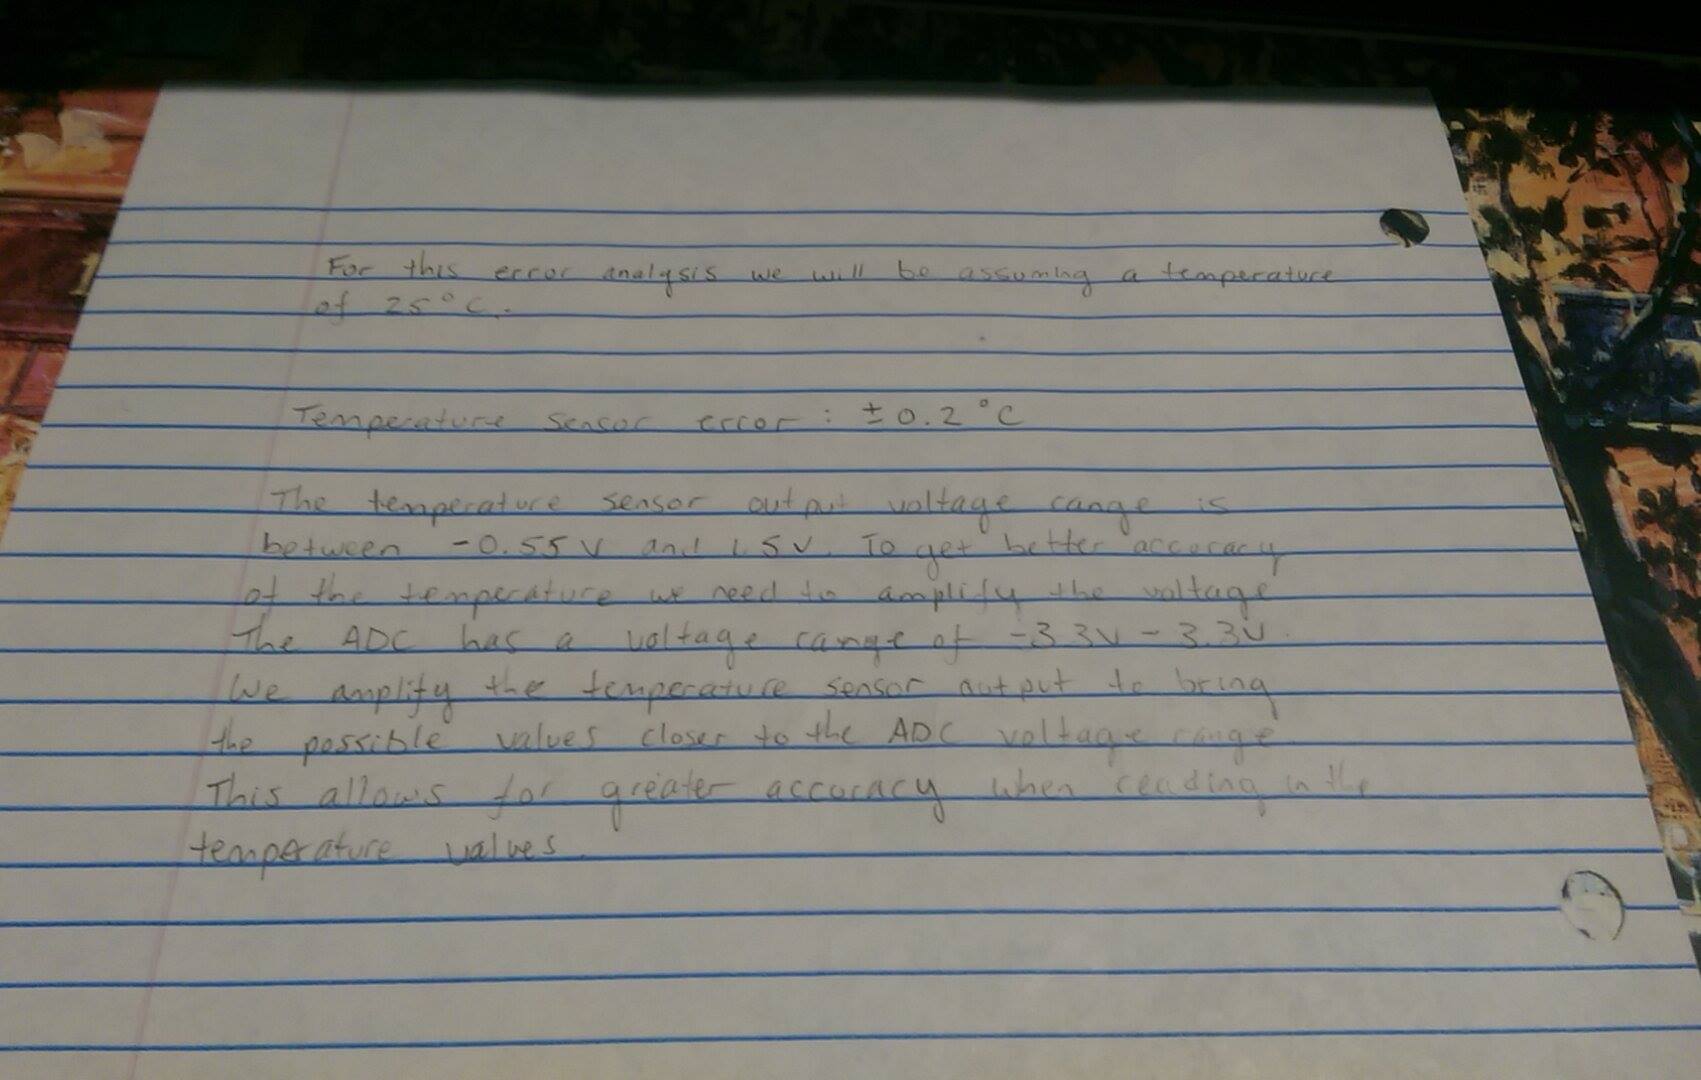 For this error analysis we will be assuming a temperature
of 25°C.
Temperature sensor error: ±0.2 °C
The temperature sensor output voltage range is
between -0.55 V and 1.5V. To get better accuracy
of the temperature we need to amplify the voltage
The ADC has a voltage range of -3.3V - 3.3V.
We amplify the temperature sensor output to bring
the possible values closer to the ADC voltage range
This allows for greater accuracy when reading in the
temperature values.